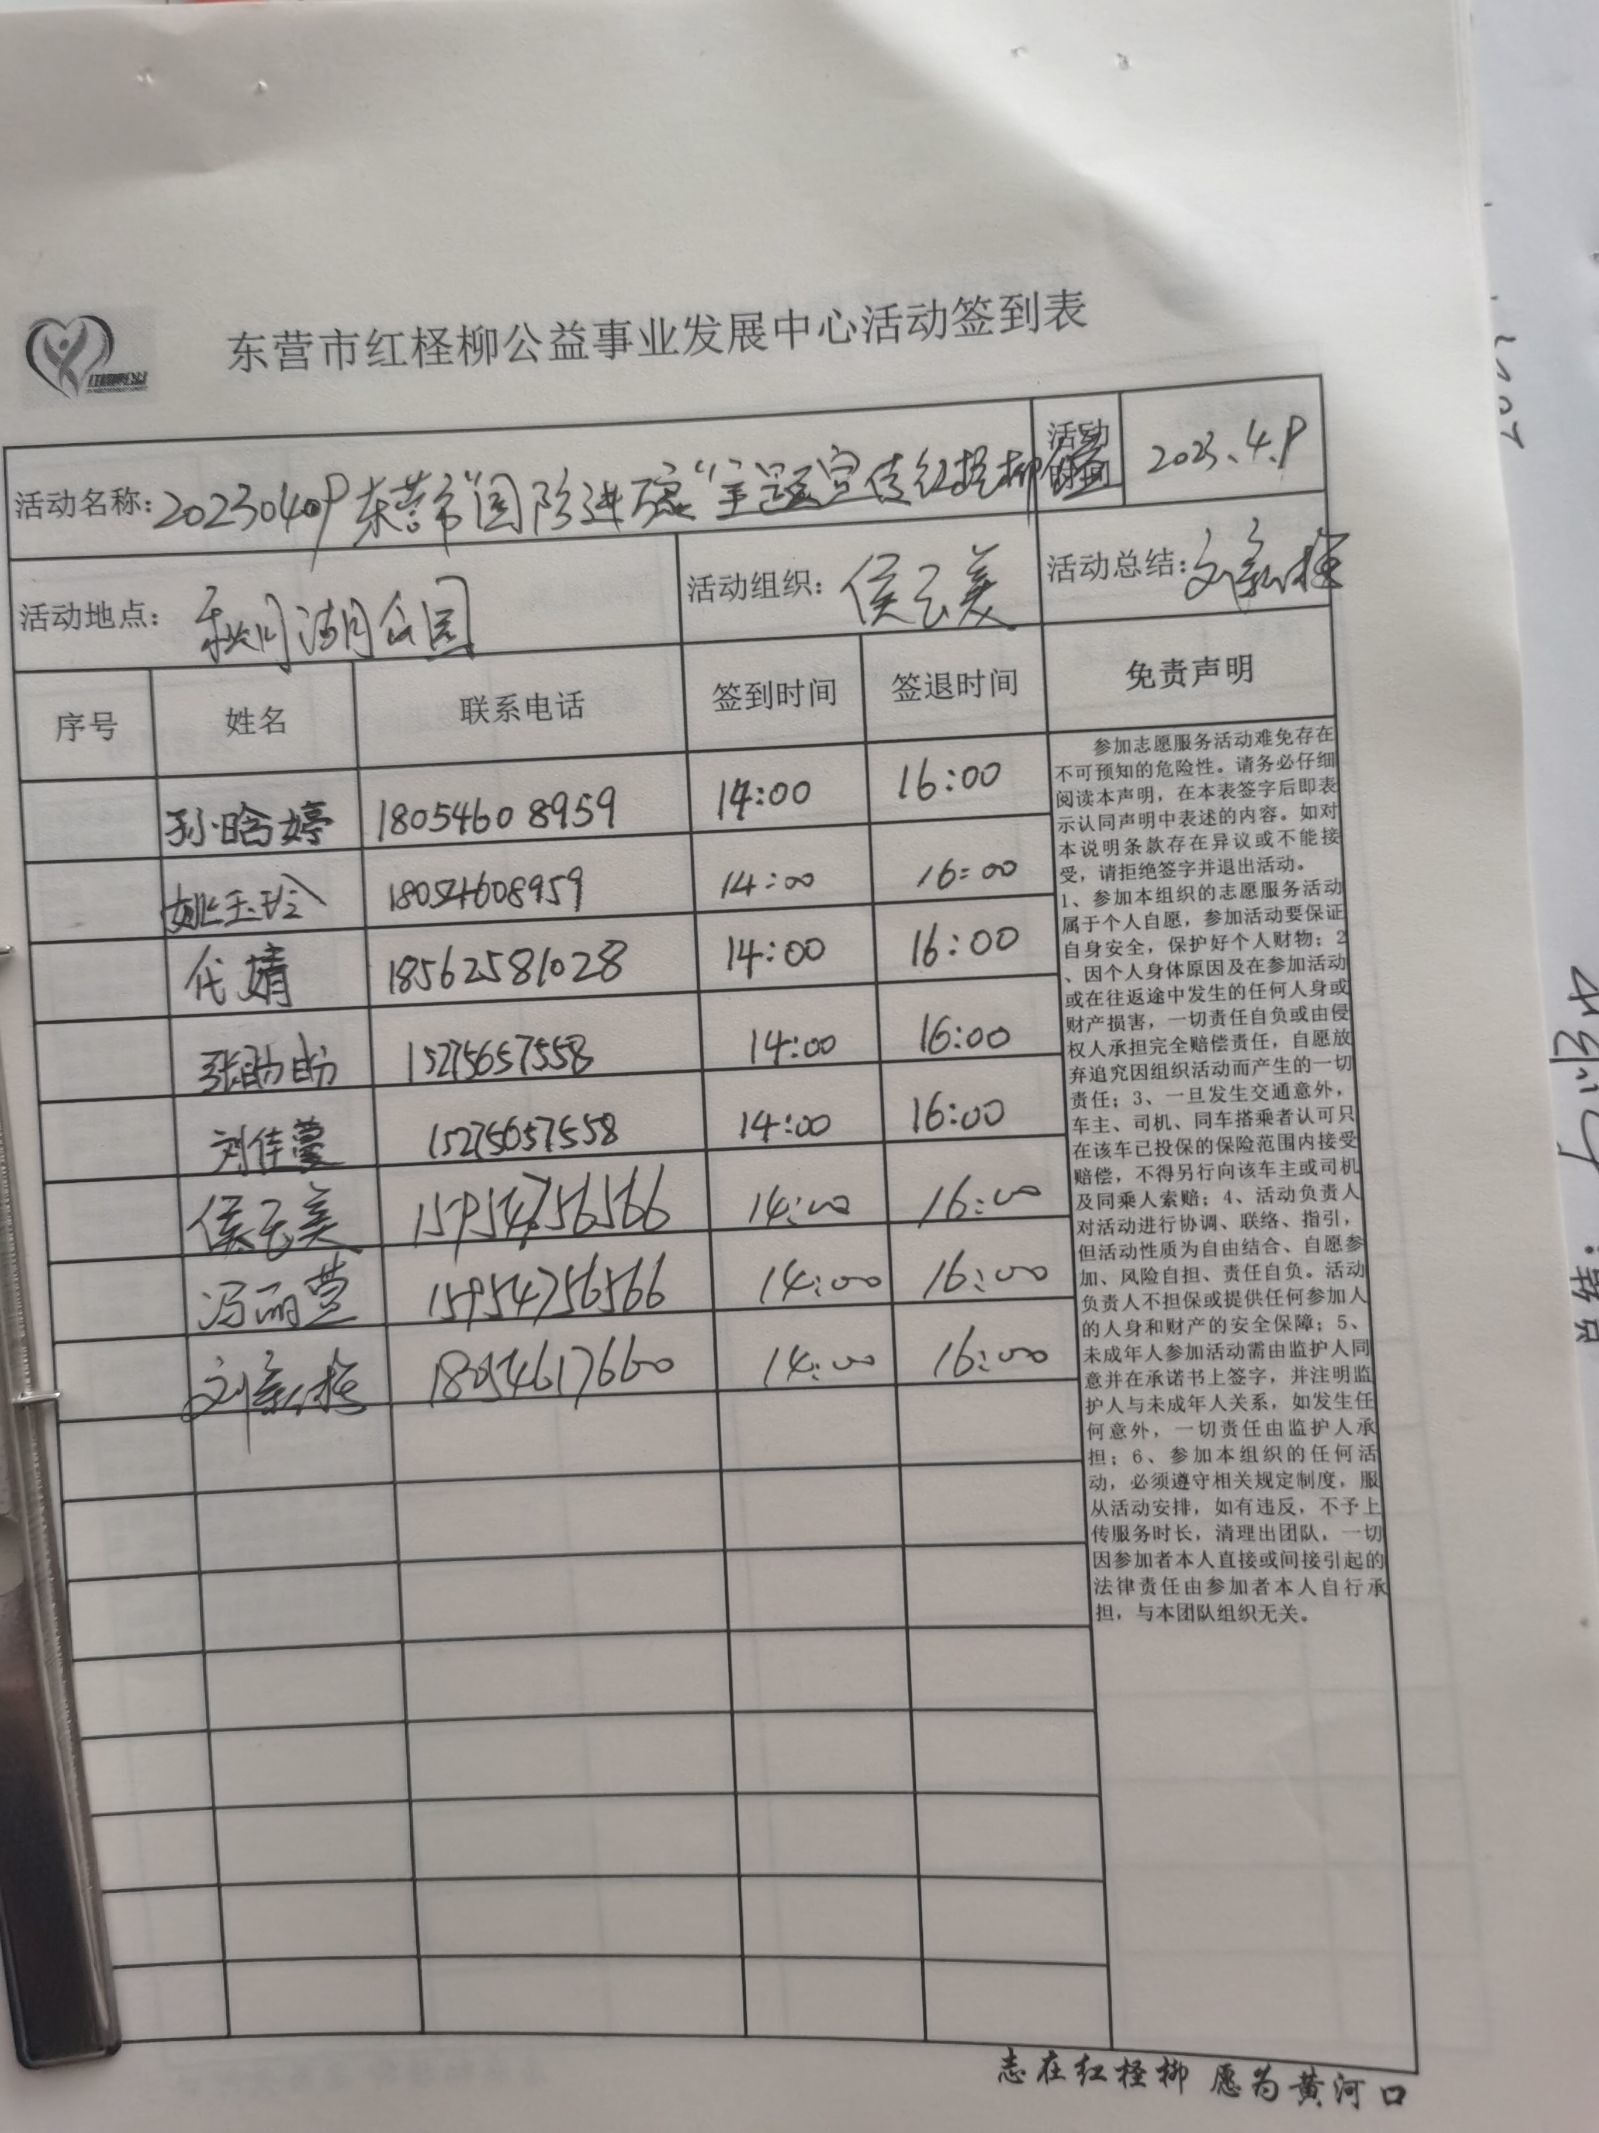 东营市红柽柳公益事业发展中心活动签到表
活动名称: 20230409东营市"国防进万家"主题宣传红柽柳 活动时间 2023.4.9
活动地点: 湖公园 活动组织: 侯云美 活动总结: 刘新
序号 姓名 联系电话 签到时间 签退时间 免责声明
孙晗婷 18054608959 14:00 16:00
姚玉玲 18054608959 14:00 16:00
代婧 18562581028 14:00 16:00
张盼盼 15275657558 14:00 16:00
刘佳蔓 15275657558 14:00 16:00
侯云美 15954756566 14:00 16:00
冯丽萱 15954756566 14:00 16:00
刘新 18054617660 14:00 16:00
参加志愿服务活动难免存在
不可预知的危险性。请务必仔细
阅读本声明，在本表签字后即表
示认同声明中表述的内容。如对
本说明条款存在异议或不能接
受，请拒绝签字并退出活动。
1、参加本组织的志愿服务活动
属于个人自愿，参加活动要保证
自身安全，保护好个人财物；2
、因个人身体原因及在参加活动
或在往返途中发生的任何人身或
财产损害，一切责任自负或由侵
权人承担完全赔偿责任，自愿放
弃追究因组织活动而产生的一切
责任；3、一旦发生交通意外，
车主、司机、同车搭乘者认可只
在该车已投保的保险范围内接受
赔偿，不得另行向该车主或司机
及同乘人索赔；4、活动负责人
对活动进行协调、联络、指引，
但活动性质为自由结合、自愿参
加、风险自担、责任自负。活动
负责人不担保或提供任何参加人
的人身和财产的安全保障；5、
未成年人参加活动需由监护人同
意并在承诺书上签字，并注明监
护人与未成年人关系，如发生任
何意外，一切责任由监护人承
担；6、参加本组织的任何活
动，必须遵守相关规定制度，服
从活动安排，如有违反，不予上
传服务时长，清理出团队，一切
因参加者本人直接或间接引起的
法律责任由参加者本人自行承
担，与本团队组织无关。
志在红柽柳 愿为黄河口